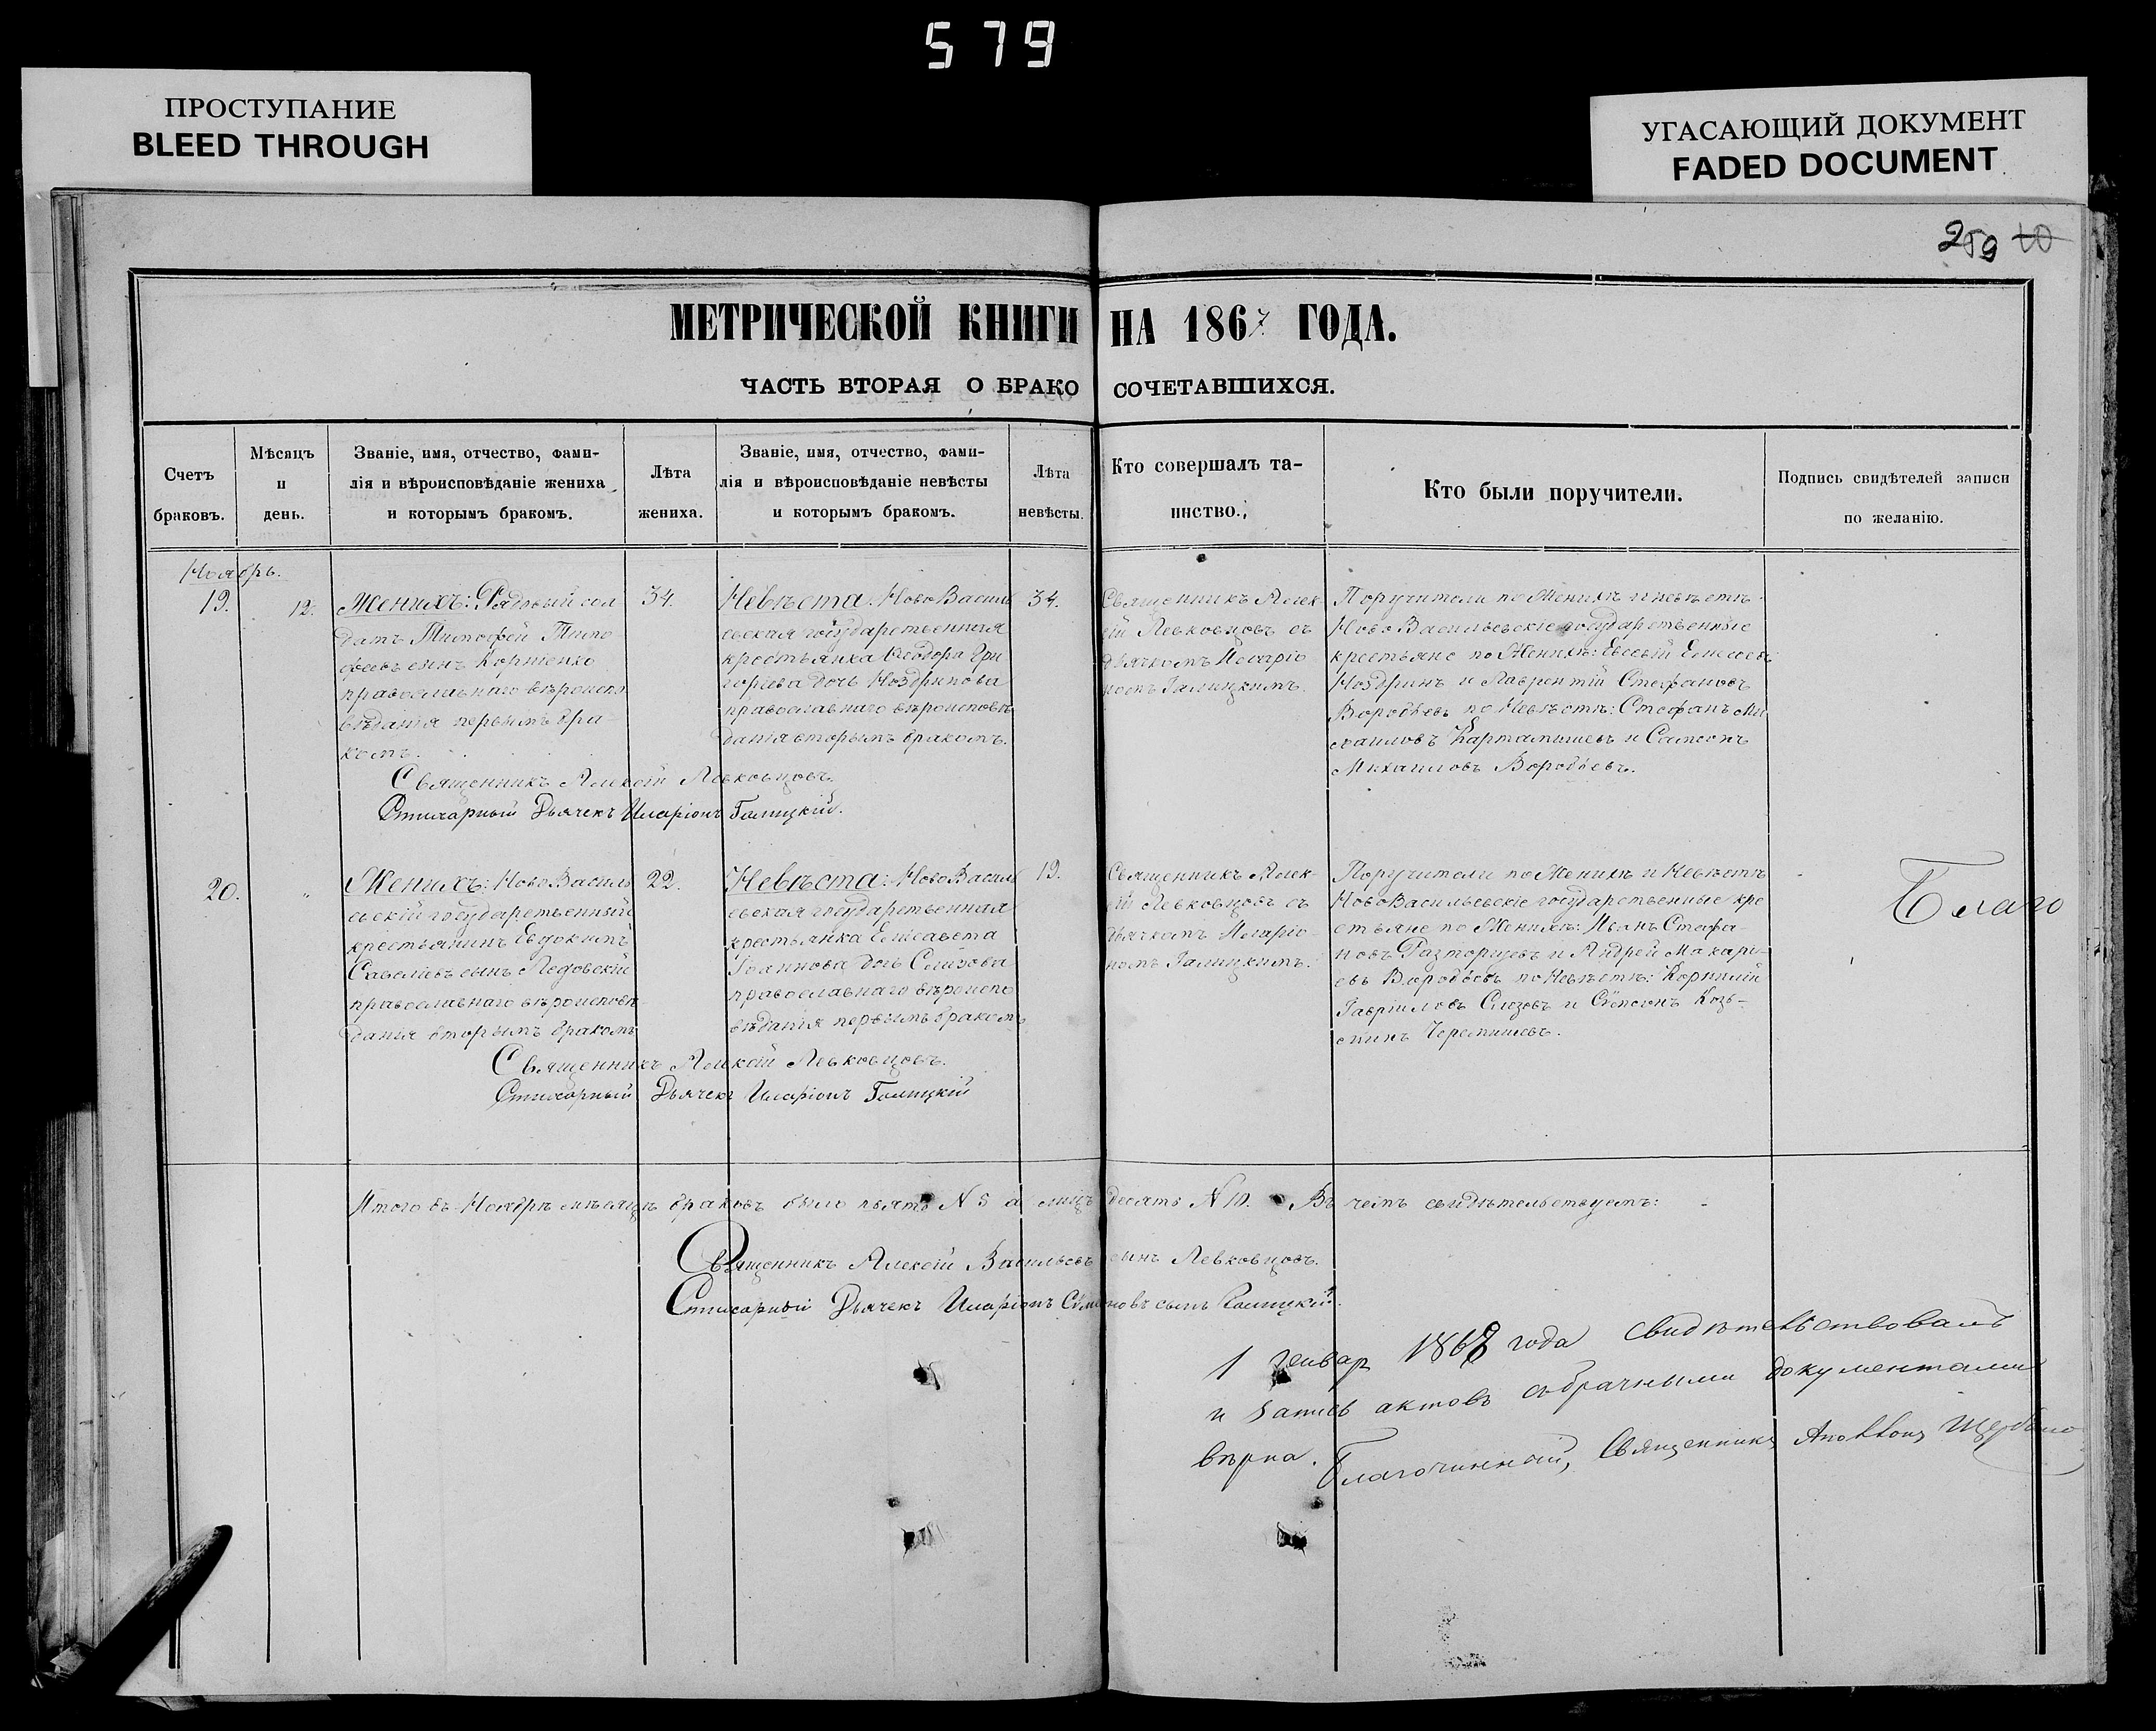 579
ПРОСТУПАНИЕ
BLEED THROUGH
УГАСАЮЩИЙ ДОКУМЕНТ
FADED DOCUMENT
259 10
МЕТРИЧЕСКОЙ КНИГИ НА 1867 ГОДА.
ЧАСТЬ ВТОРАЯ О БРАКОСОЧЕТАВШИХСЯ.
Счетъ
браковъ.
Мѣсяцъ
и
день.
Званіе, имя, отчество, фами-
лія и вѣроисповѣданіе жениха
и которымъ бракомъ.
Лѣта
жениха.
Званіе, имя, отчество, фами-
лія и вѣроисповѣданіе невѣсты
и которымъ бракомъ.
Лѣта
невѣсты.
Кто совершалъ та-
инство.
Кто были поручители.
Подпись свидѣтелей записи
по желанію.
Ноябрь.
19.
12.
Женихъ: Рядовый сол
датъ Тимофей Тимо-
феевъ сынъ Корніенко
православнаго вѣроиспо
вѣданія первымъ бра-
комъ.
34.
Невѣста: НовоВасиль
евская государственная
крестьянка Ѳеодора Гри
горіева дочь Ноздринова
православнаго вѣроисповѣ
данія вторымъ бракомъ.
34.
Священникъ Алек
ѣй Левковцовъ съ
дьячкомъ Иларіо
номъ Галицкимъ.
Поручители по Женихѣ и невѣстѣ
НовоВасильевскіе государственные
крестьяне по Женихѣ: Евсевій Елисеевъ
Ноздринъ и Лаврентій Стефановъ
Воробьевъ по Невѣстѣ: Стефанъ Ми
хаиловъ Картамышевъ и Самсонъ
Михаиловъ Воробьевъ.
Священникъ Алексій Левковцовъ.
Стихарный Дьячекъ Иларіонъ Галицкій.
20.
"
Женихъ: НовоВасиль
евскій государственный
крестьянинъ Евдокимъ
Савеліевъ сынъ Ледовскій
православнаго вѣроисповѣ-
данія вторымъ бракомъ
22.
Невѣста: НовоВасиль
евская государственная
крестьянка Елисавета
Іоаннова дочь Слизова
православнаго вѣроиспо
вѣданія первымъ бракомъ
19.
Священникъ Алек-
ѣй Левковцовъ съ
дьячкомъ Иларіо-
номъ Галицкимъ.
Поручители по Женихѣ и Невѣстѣ
НовоВасильевскіе государственные кре
стьяне по Женихѣ: Иванъ Стефа-
новъ Разторцевъ и Андрей Макарі-
евъ Воробьевъ по Невѣстѣ: Корнилій
Гавріиловъ Слизовъ и Симеонъ Козь-
минъ Черемишевъ.
Благо
Священникъ Алексій Левковцовъ.
Стихарный Дьячекъ Иларіонъ Галицкій
Итого въ Ноябрѣ мѣсяцѣ браковъ было пять N 5 а лицъ десять N 10. Въ чемъ свидѣтельствуемъ:
Священникъ Алексій Васильевъ сынъ Левковцовъ.
Стихарный Дьячекъ Иларіонъ Симеоновъ сынъ Галицкій.
1 генвар 1868 года свидѣтельствовалъ
и запись актовъ съ брачными документами
вѣрна. Благочинный, Священникъ Аполлонъ